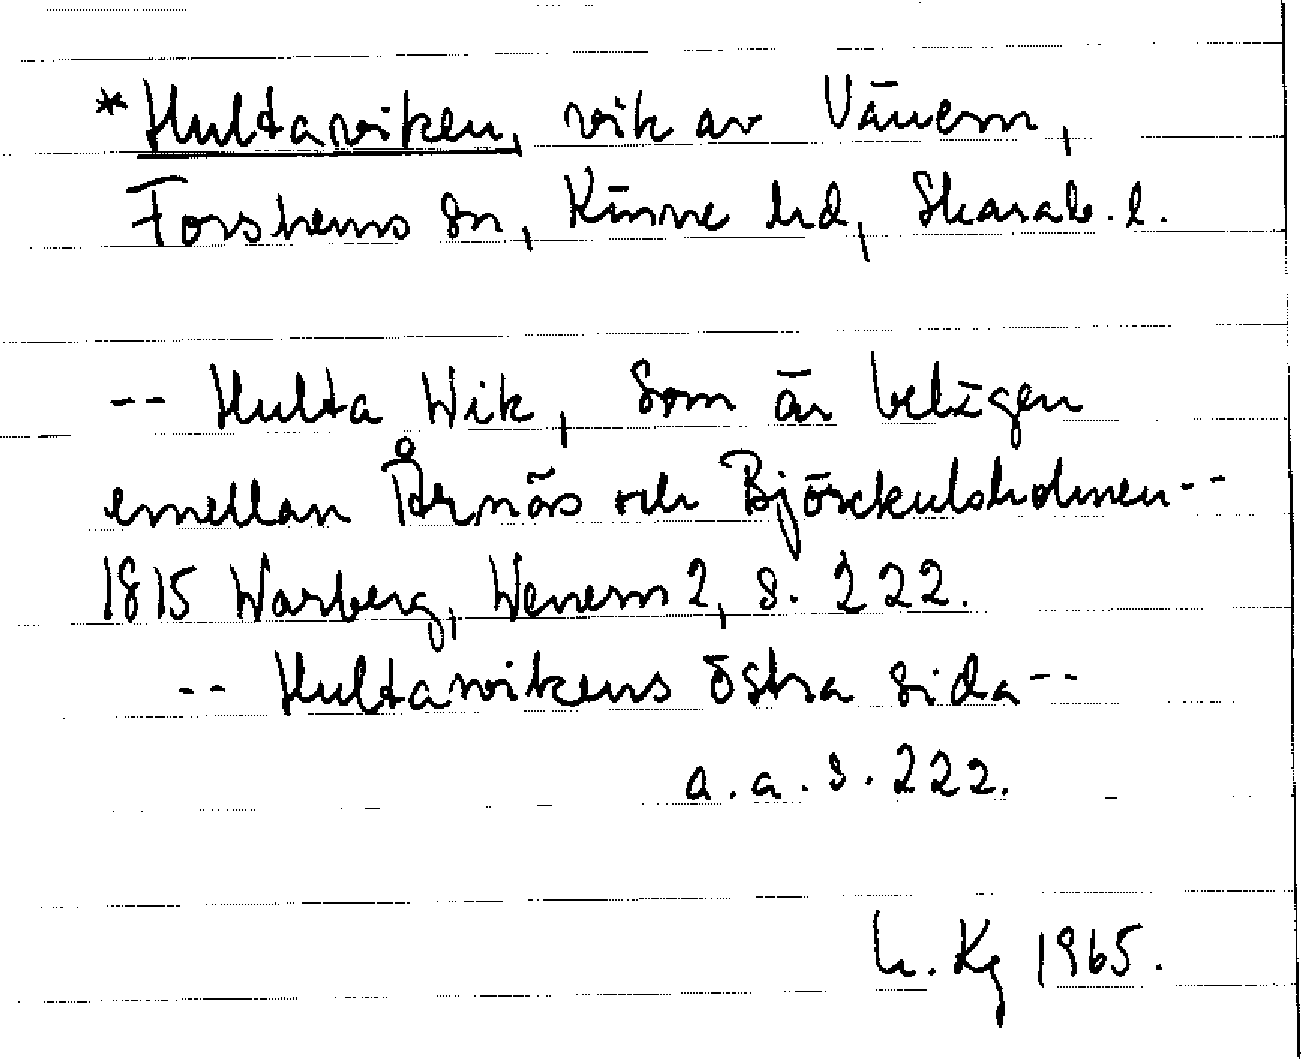 *Hultaviken, vik av Vänern,
Forshems sn, Kinne hd, Skarab. l.
-- Hulta Wik, som är belägen
emellan Årnäs och Björckulsholmen--
1815 Warberg, Wenern 2, s. 222.
-- Hultavikens östra sida--
a.a.s. 222.
h. Kg 1965.